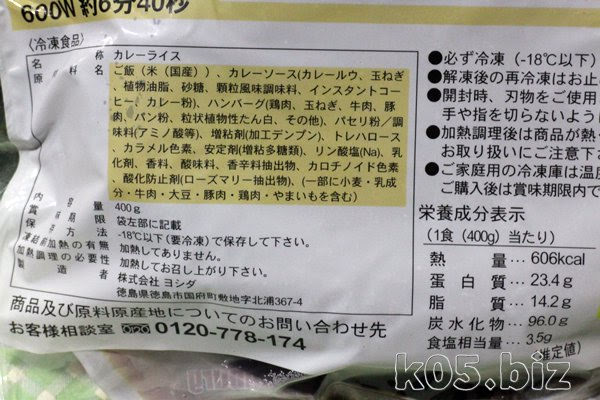 600W 約6分40秒
〈冷凍食品〉
名称 カレーライス
原材料名 ご飯（米（国産））、カレーソース（カレールウ、玉ねぎ、
植物油脂、砂糖、顆粒風味調味料、インスタントコ
ーヒー、カレー粉）、ハンバーグ（鶏肉、玉ねぎ、牛肉、豚
肉、パン粉、粒状植物性たん白、その他）、パセリ粉／調
味料（アミノ酸等）、増粘剤（加工デンプン）、トレハロース
、カラメル色素、安定剤（増粘多糖類）、リン酸塩(Na)、乳
化剤、香料、酸味料、香辛料抽出物、カロチノイド色素、
酸化防止剤（ローズマリー抽出物）、（一部に小麦・乳成
分・牛肉・大豆・豚肉・鶏肉・やまいもを含む）
内容量 400g
賞味期限 袋左部に記載
保存方法 -18℃以下（要冷凍）で保存して下さい。
凍結前加熱の有無 加熱してありません。
加熱調理の必要性 加熱してお召し上がり下さい。
製造者 株式会社 ヨシダ
徳島県徳島市国府町敷地字北浦367-4
商品及び原料原産地についてのお問い合わせ先
お客様相談室 0120-778-174
●必ず冷凍（-18℃以下）
●解凍後の再冷凍はお止
●開封時、刃物をご使用
手や指を切らないように
●加熱調理後は商品が熱
お取り扱いにご注意下さ
●ご家庭用の冷凍庫は温度
ご購入後は賞味期限内で
栄養成分表示
（1食（400g）当たり）
熱量…606kcal
蛋白質…23.4g
脂質…14.2g
炭水化物…96.0g
食塩相当量…3.5g
（推定値）
k05.biz